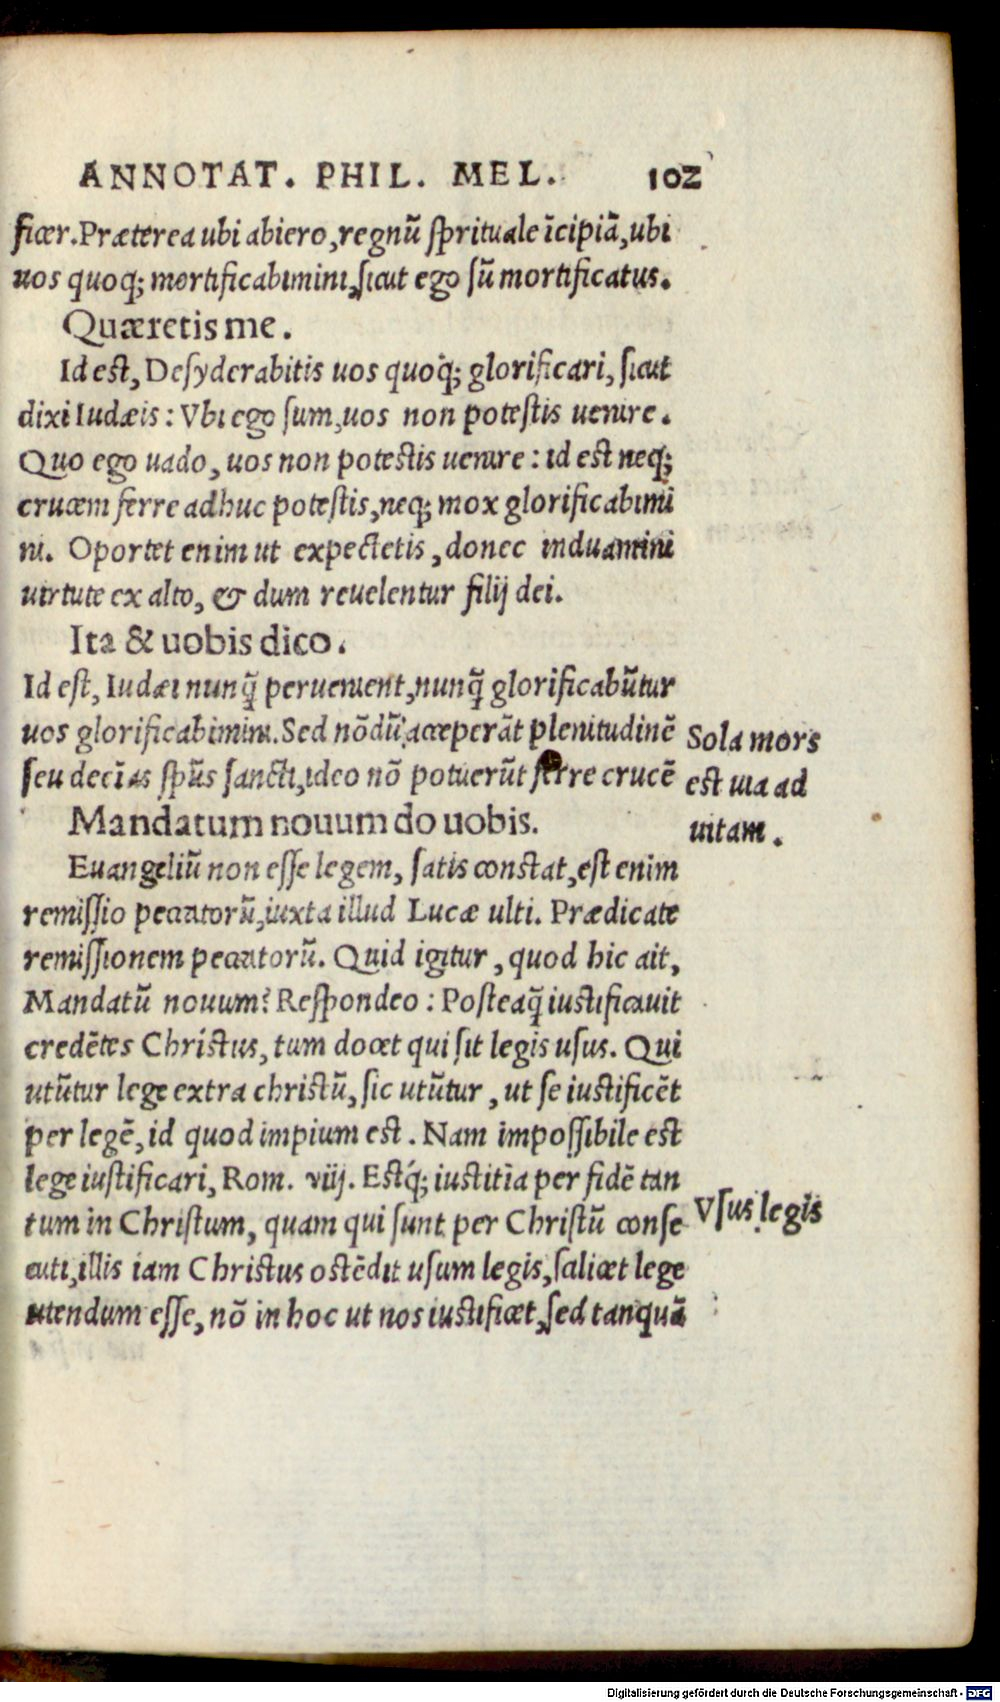 ANNOTAT. PHIL. MEL. 102
ficer. Præterea ubi abiero, regnũ sprituale ĩcipiã, ubi
uos quoq; mortificabimini, sicut ego sũ mortificatus.
Quæretis me.
Id est, Desyderabitis uos quoq; glorificari, sicut
dixi Iudæis: Vbi ego sum, uos non potestis uenire.
Quo ego uado, uos non potestis uenire: id est neq;
crucem ferre adhuc potestis, neq; mox glorificabimi
ni. Oportet enim ut expectetis, donec induamini
uirtute ex alto, & dum reuelentur filij dei.
Ita & uobis dico.
Id est, Iudæi nunq̃ peruenient, nunq̃ glorificabũtur
uos glorificabimini. Sed nõdũ acceperãt plenitudinẽ
seu decĩas spũs sancti, ideo nõ potuerũt ferre crucẽ
Sola mors
est uia ad
uitam.
Mandatum nouum do uobis.
Euangeliũ non esse legem, satis constat, est enim
remissio peccatorũ, iuxta illud Lucæ ulti. Prædicate
remissionem peccatorũ. Quid igitur, quod hic ait,
Mandatũ nouum? Respondeo: Posteaq̃ iustificauit
credẽtes Christus, tum docet qui sit legis usus. Qui
utũtur lege extra christũ, sic utũtur, ut se iustificẽt
per legẽ, id quod impium est. Nam impossibile est
lege iustificari, Rom. viij. Estq́; iustitia per fidẽ tan
tum in Christum, quam qui sunt per Christũ conse
Vsus legis
cuti, illis iam Christus ostẽdit usum legis, scilicet lege
utendum esse, nõ in hoc ut nos iustificet, sed tanquã
Digitalisierung gefördert durch die Deutsche Forschungsgemeinschaft - DFG